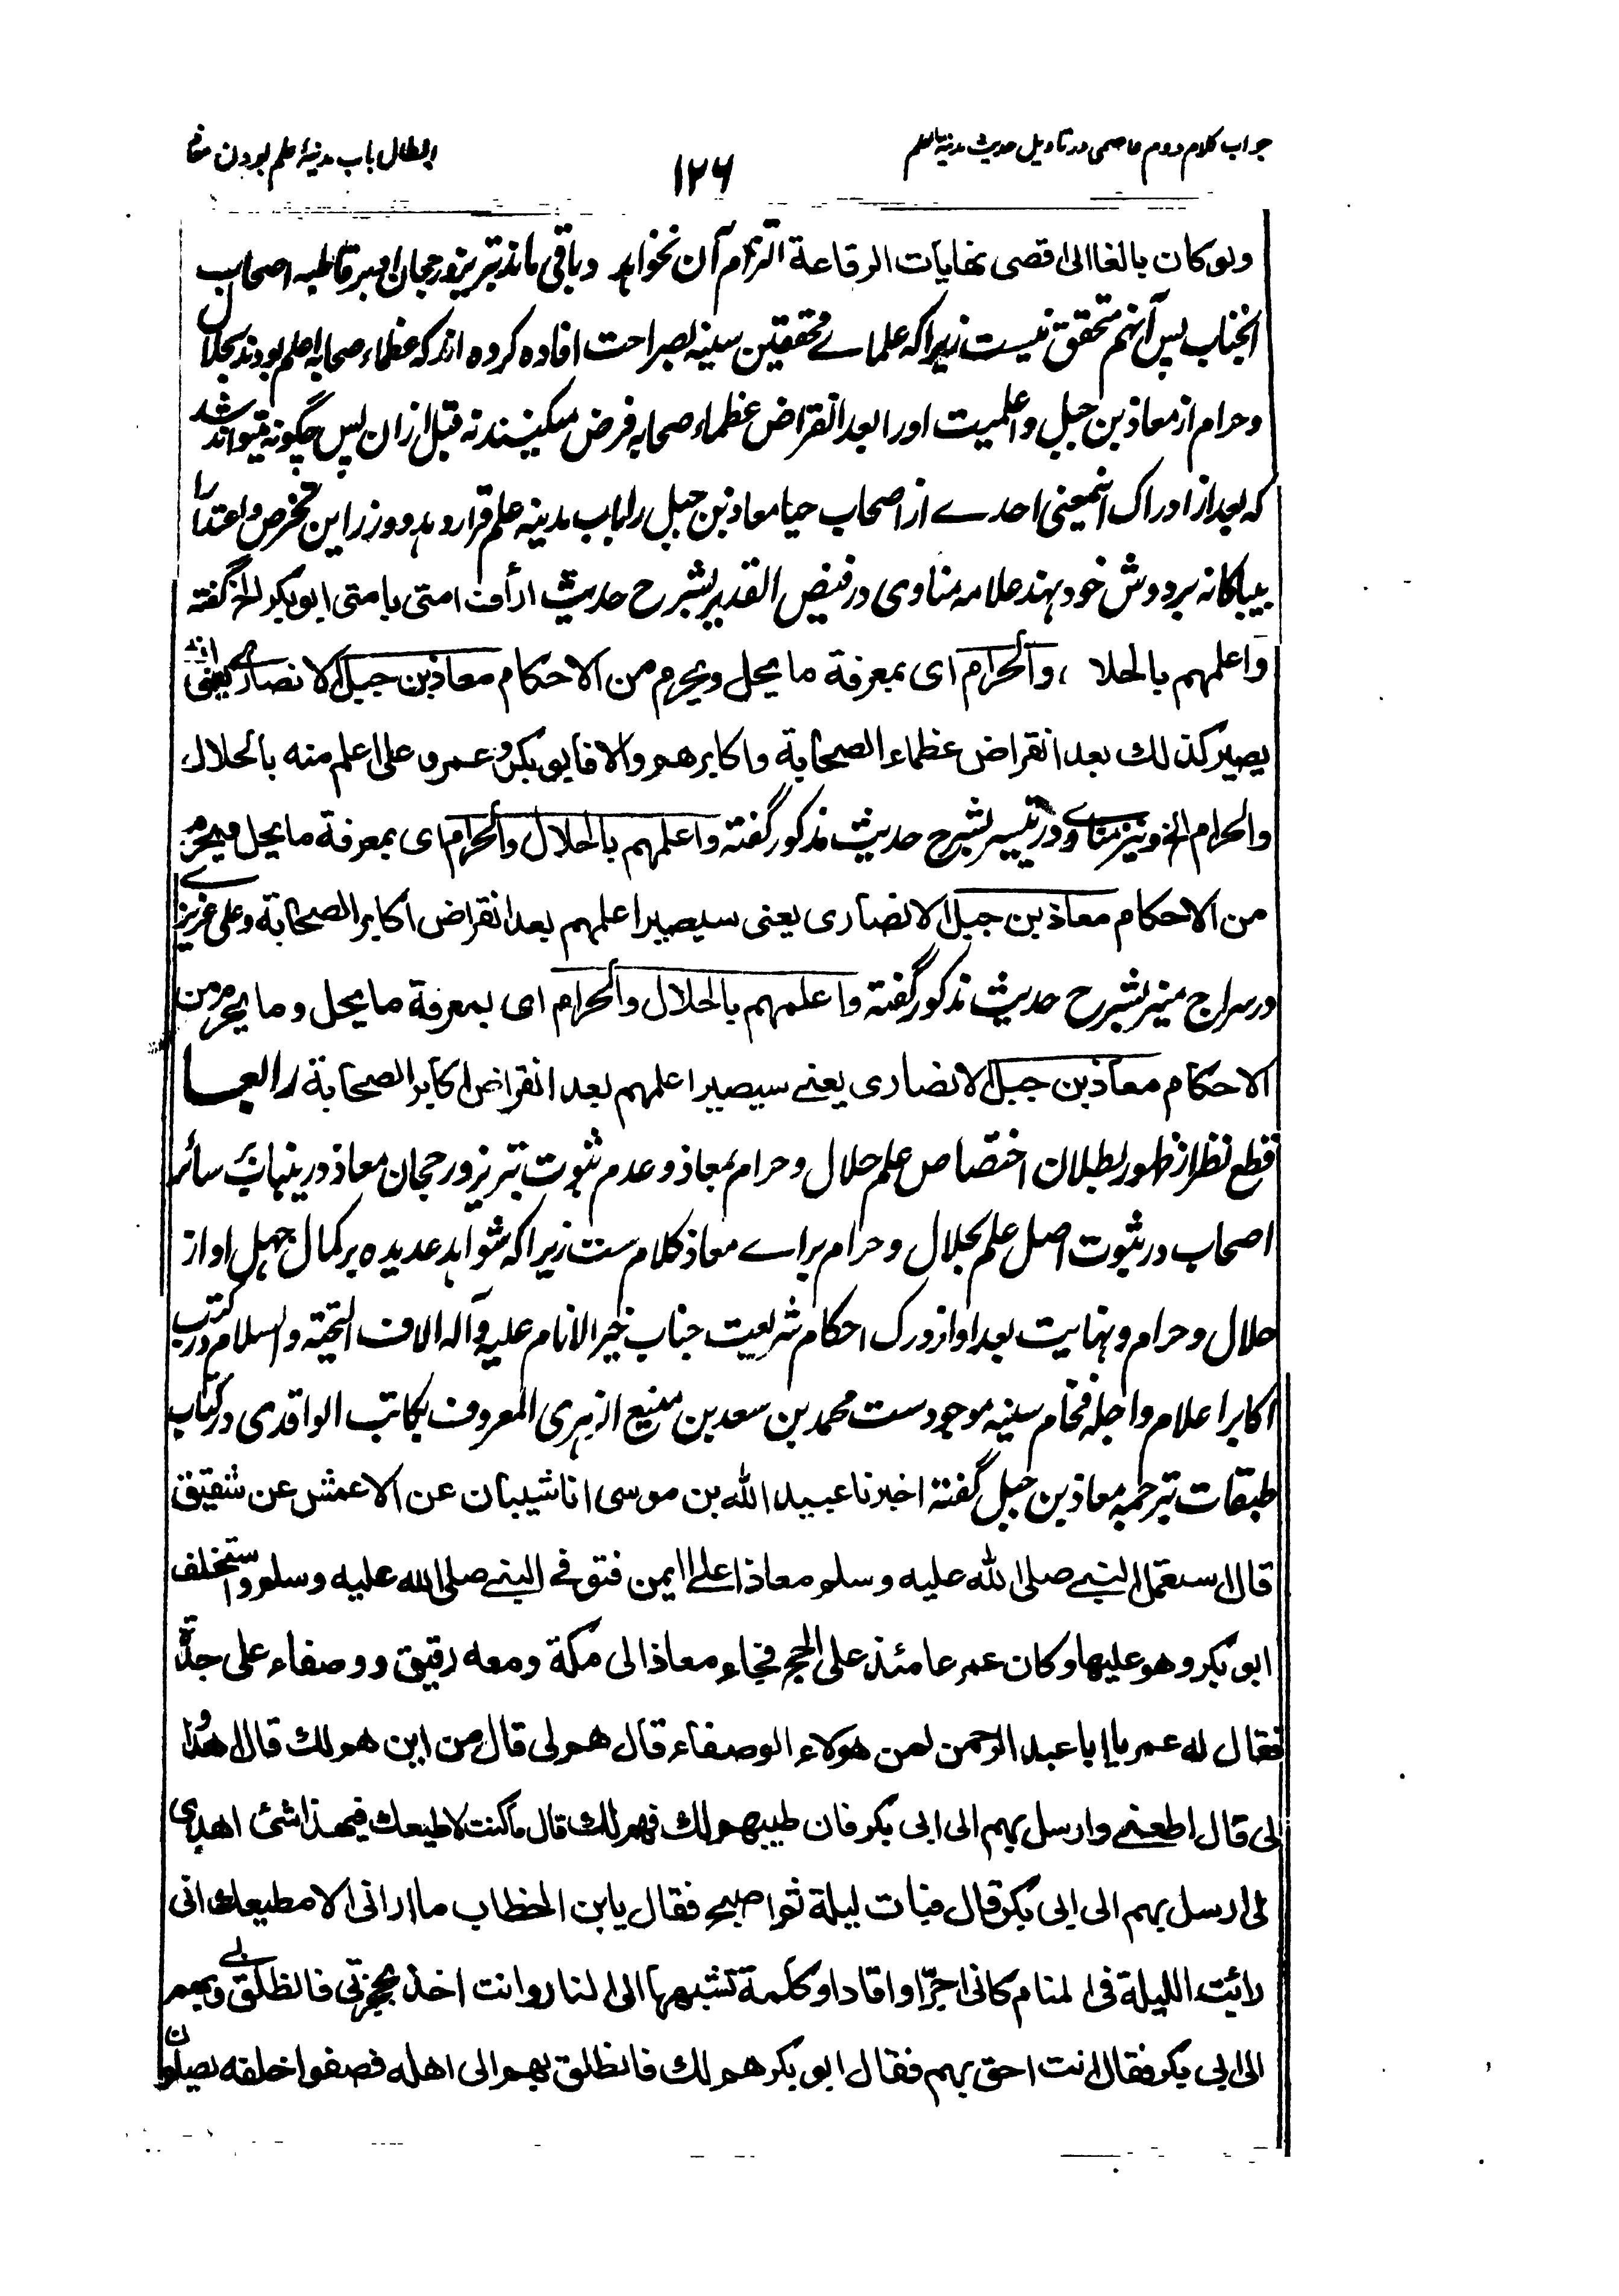 جواب کلام دوم عاصمی در تاویل حدیث مدینة العلم
۱۲۶
ابطال باب مدینهٔ علم بودن معاذ
ولو کان بالغا الی اقصی نهایات الرقاعة التزام آن نخواهد و باقی ماند تبریز و رجحان او بر قاطبه اصحاب
انجناب پس آنهم متحقق نیست زیرا که علمای محققین سنیه بصراحت افاده کرده اند که عظماء صحابه اعلم بودند بحلال
و حرام از معاذ بن جبل و اعلمیت او را بعد انقراض عظماء صحابه فرض میکنند نه قبل ازان پس چگونه میتواند شد
که بعد از ادراک اینمعنی احدے از اصحاب حیا معاذ بن جبل را باب مدینه علم قرار دهد و وزر این تخرص و اعتدا را
بیباکانه بر دوش خود نهد علامه مناوی در فیض القدیر بشرح حدیث ارأف امتی بامتی ابوبکر الخ گفته
واعلمهم بالحلال والحرام ای بمعرفة ما یحل ویحرم من الاحکام معاذ بن جبل الانصاری یعنی انه
یصیر کذلك بعد انقراض عظماء الصحابة واکابرهم والا فابو بکر و عمر و علی اعلم منه بالحلال
والحرام الخ و نیز مناوی در تیسیر بشرح حدیث مذکور گفته واعلمهم بالحلال والحرام ای بمعرفة ما یحل ویحرم
من الاحکام معاذ بن جبل الانصاری یعنی سیصیر اعلمهم بعد انقراض اکابر الصحابة و علی عزیزے
در سراج منیر بشرح حدیث مذکور گفته واعلمهم بالحلال والحرام ای بمعرفة ما یحل وما یحرم من
الاحکام معاذ بن جبل الانصاری یعنے سیصیر اعلمهم بعد انقراض اکابر الصحابة رابعا
قطع نظر از ظهور بطلان اختصاص علم حلال و حرام بمعاذ و عدم ثبوت تبریز و رجحان معاذ درینباب بر سائر
اصحاب در ثبوت اصل علم بحلال و حرام براے معاذ کلام ست زیرا که شواهد عدیده بر کمال جهل او از
حلال و حرام و نهایت بعد او از درک احکام شریعت جناب خیر الانام علیه و آله الاف التحیة والسلام در کتب
اکابر اعلام و اجله فخام سنیه موجودست محمد بن سعد بن منیع الزهری المعروف بکاتب الواقدی در کتاب
طبقات بترجمهٔ معاذ بن جبل گفته اخبرنا عبید الله بن موسی انا شیبان عن الاعمش عن شقیق
قال استعمل النبے صلی الله علیه وسلم معاذا علی الیمن فتوفے النبے صلی الله علیه وسلم واستخلف
ابو بکر وهو علیها وکان عمر عامئذ علی الحج فجاء معاذ الی مکة ومعه رقیق ووصفاء علی حدة
فقال له عمر یا ابا عبد الرحمن لمن هولاء الوصفاء قال هم لی قال من این هم لك قال اهدوا
لی قال اطعنے وارسل بهم الی ابی بکر فان طیبهم لك فهم لك قال ما کنت لاطیعك فی هذا شئ اهدی
لی ارسل بهم الی ابی بکر قال فبات لیلة ثم اصبح فقال یابن الخطاب ما ارانی الا مطیعك انی
رائیت اللیلة فی المنام کانی اجرّ او اقاد او کلمة تشبهها الی النار وانت اخذ بحجزتی فانطلق بے وبهم
الی ابی بکر فقال انت احق بهم فقال ابو بکر هم لك فانطلق بهم الی اهله فصفوا خلفه یصلون